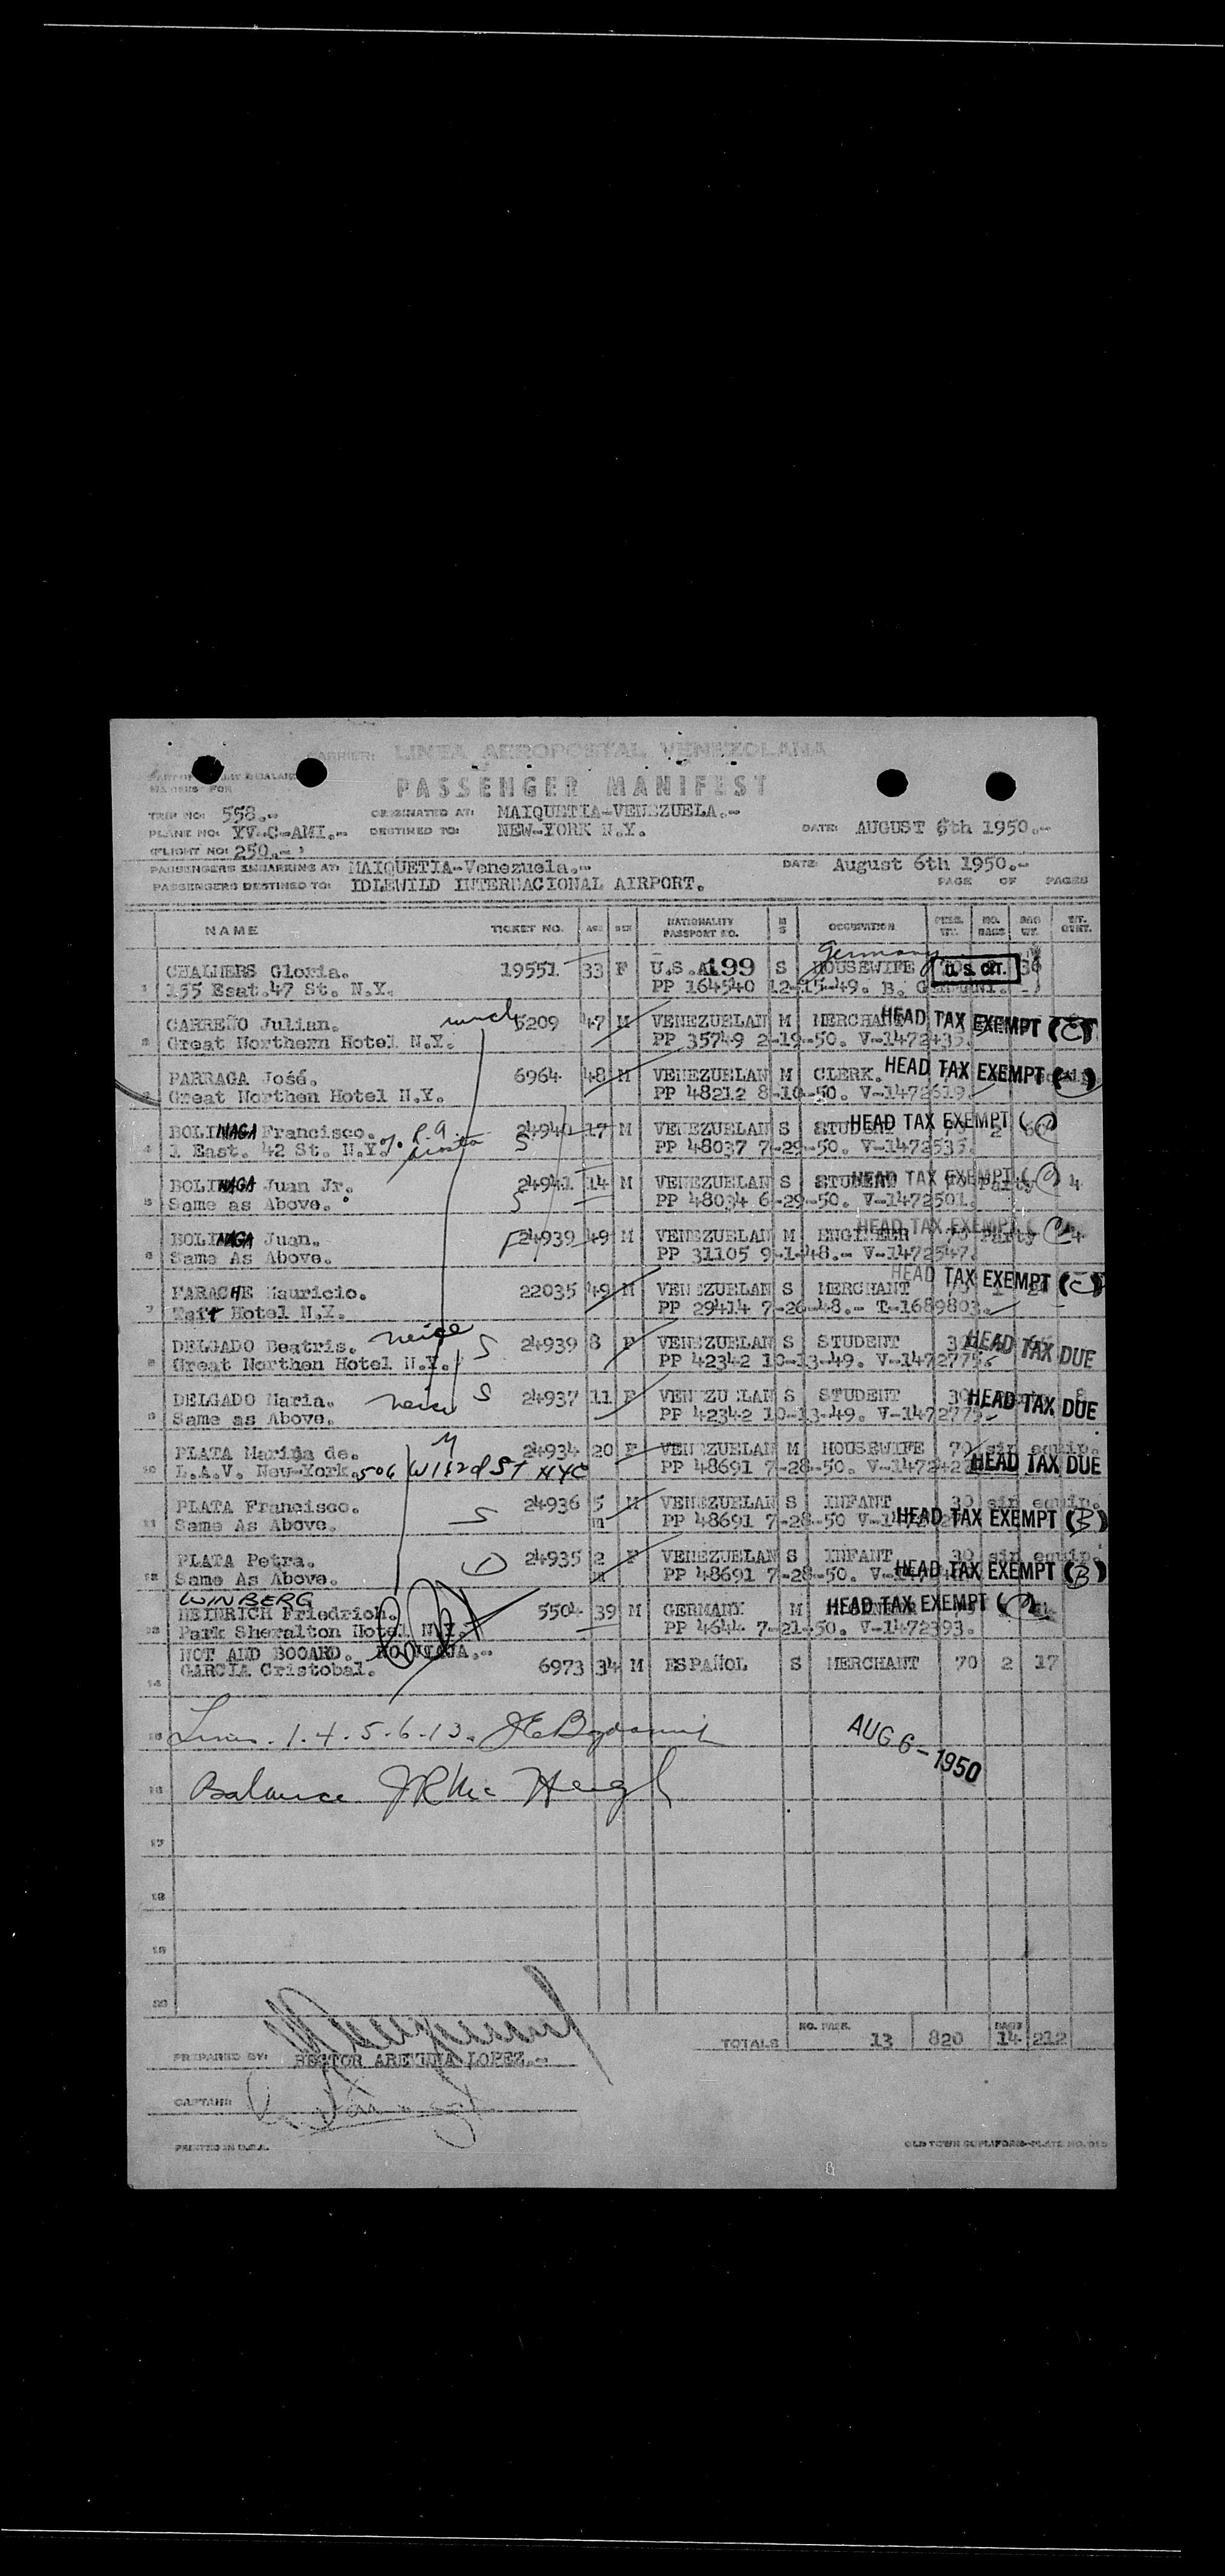 CARRIER: LINEA AEROPOSTAL VENEZOLANA
PASSENGER MANIFEST
TRIP NO: 558.- ORIGINATED AT: MAIQUETIA-VENEZUELA.-
PLANE NO: YV-C-AMI.- DESTINED TO: NEW-YORK N.Y. DATE: AUGUST 6th 1950.-
FLIGHT NO: 250.-
PASSENGERS EMBARKING AT: MAIQUETIA-Venezuela.- DATE: August 6th 1950.-
PASSENGERS DESTINED TO: IDLEWILD INTERNACIONAL AIRPORT. PAGE OF PAGES
NAME TICKET NO. AGE SEX NATIONALITY PASSPORT NO. M S OCCUPATION NO. BAGS BAG WT.
Germany
CHALMERS Gloria. 19551 33 F U.S.A 199 S HOUSEWIFE U.S. CIT.
1 155 Esat.47 St. N.Y. PP 164540 12-15-49. B.
CARREÑO Julian. 5209 47 M VENEZUELAN M MERCHANT HEAD TAX EXEMPT (C)
2 Great Northern Hotel N.Y. PP 35749 2-19-50. V-1472435.
PARRAGA José. 6964 48 M VENEZUELAN M CLERK. HEAD TAX EXEMPT
3 Great Northen Hotel N.Y. PP 48212 8-10-50. V-1472619.
BOLINAGA Francisco. 24940 17 M VENEZUELAN S STUDENT HEAD TAX EXEMPT
4 1 East. 42 St. N.Y. S PP 48037 7-29-50. V-1472535.
BOLINAGA Juan Jr. 24941 14 M VENEZUELAN S STUDENT HEAD TAX EXEMPT 4
5 Same as Above. S PP 48034 6-29-50. V-1472501.
BOLINAGA Juan. F 24939 49 M VENEZUELAN M ENGINEER HEAD TAX EXEMPT
6 Same As Above. PP 31105 9-1-48.- V-1472547.
FARACHE Mauricio. 22035 49 M VENEZUELAN S MERCHANT HEAD TAX EXEMPT (C)
7 Taft Hotel N.Y. PP 29414 7-26-48.- T-1689803.
DELGADO Beatris. neice S 24939 8 F VENEZUELAN S STUDENT HEAD TAX DUE
8 Great Northen Hotel N.Y. PP 42342 10-13-49. V-1472775.
DELGADO Maria. neice S 24937 11 F VENEZUELAN S STUDENT HEAD TAX DUE
9 Same as Above. PP 42342 10-13-49. V-1472775.
PLATA Marina de. M 24934 20 F VENEZUELAN M HOUSEWIFE 70 sin equip.
10 L.A.V. New-York. 506 W 122d ST NYC PP 48691 7-28-50. HEAD TAX DUE
PLATA Francisco. S 24936 5 M VENEZUELAN S INFANT 30 sin equip.
11 Same As Above. m PP 48691 7-28-50 HEAD TAX EXEMPT (B)
PLATA Petra. 24935 2 F VENEZUELAN S INFANT 30 sin equip.
12 Same As Above. PP 48691 7-28-50. HEAD TAX EXEMPT (B)
WINBERG
HEINRICH Friedrich. 5504 39 M GERMANY M HEAD TAX EXEMPT
13 Park Sheralton Hotel N.Y. PP 4644 7-21-50. V-1472393.
NOT AND BOOARD. NO VIAJA.-
14 GARCIA Cristobal. 6973 34 M ESPAÑOL S MERCHANT 70 2 17
15 Lines. 1. 4. 5. 6. 13.
AUG 6-1950
16 Balance
17
18
19
20
TOTALS NO. PASS. 13 820 BAGS 14 212
PREPARED BY: LOPEZ.-
CAPTAIN:
PRINTED IN U.S.A.